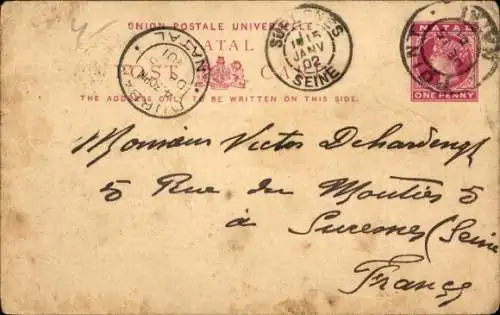 UNION POSTALE UNIVERSELLE
NATAL
THE ADDRESS ONLY TO BE WRITTEN ON THIS SIDE.
DURBAN NATAL
SURESNES
15
JANV
02
SEINE
NATAL
POINT
NATAL
ONE PENNY
Monsieur Victor
5 Rue du Moutiers 5
à Suresnes (Seine
France